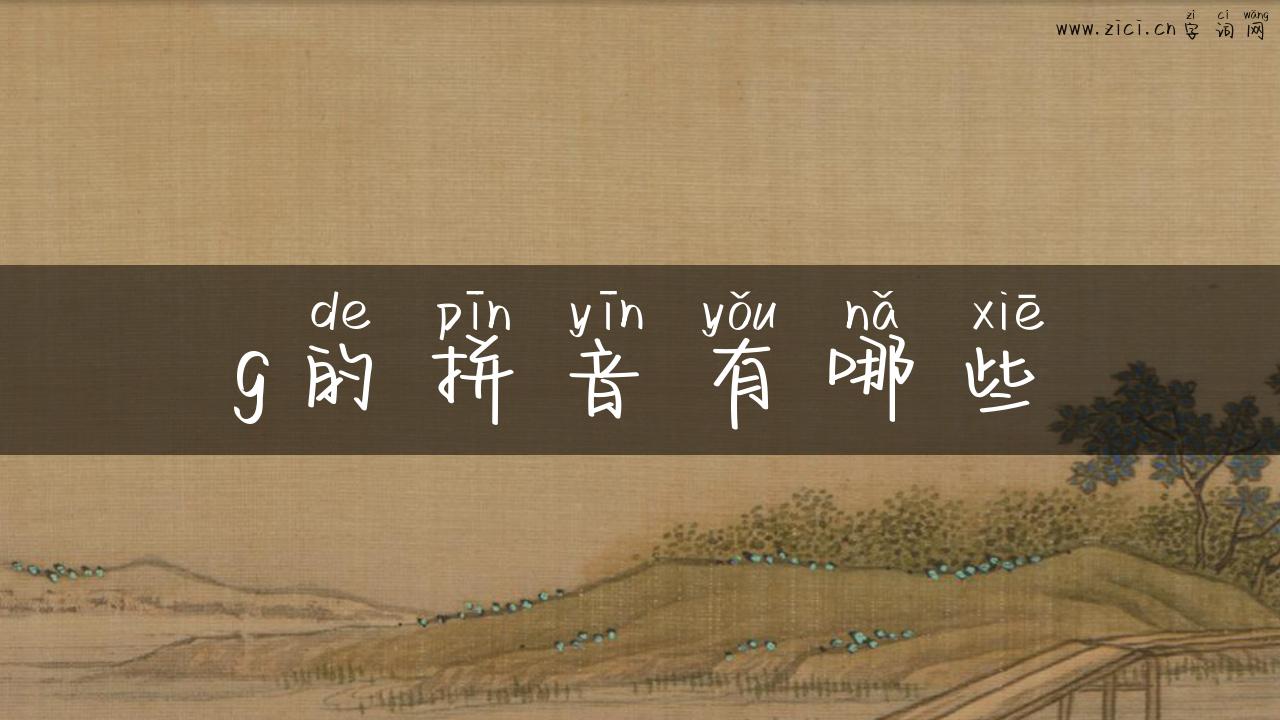 zì cí wǎng
www.zici.cn字词网
de pīn yīn yǒu nǎ xiē
g的拼音有哪些